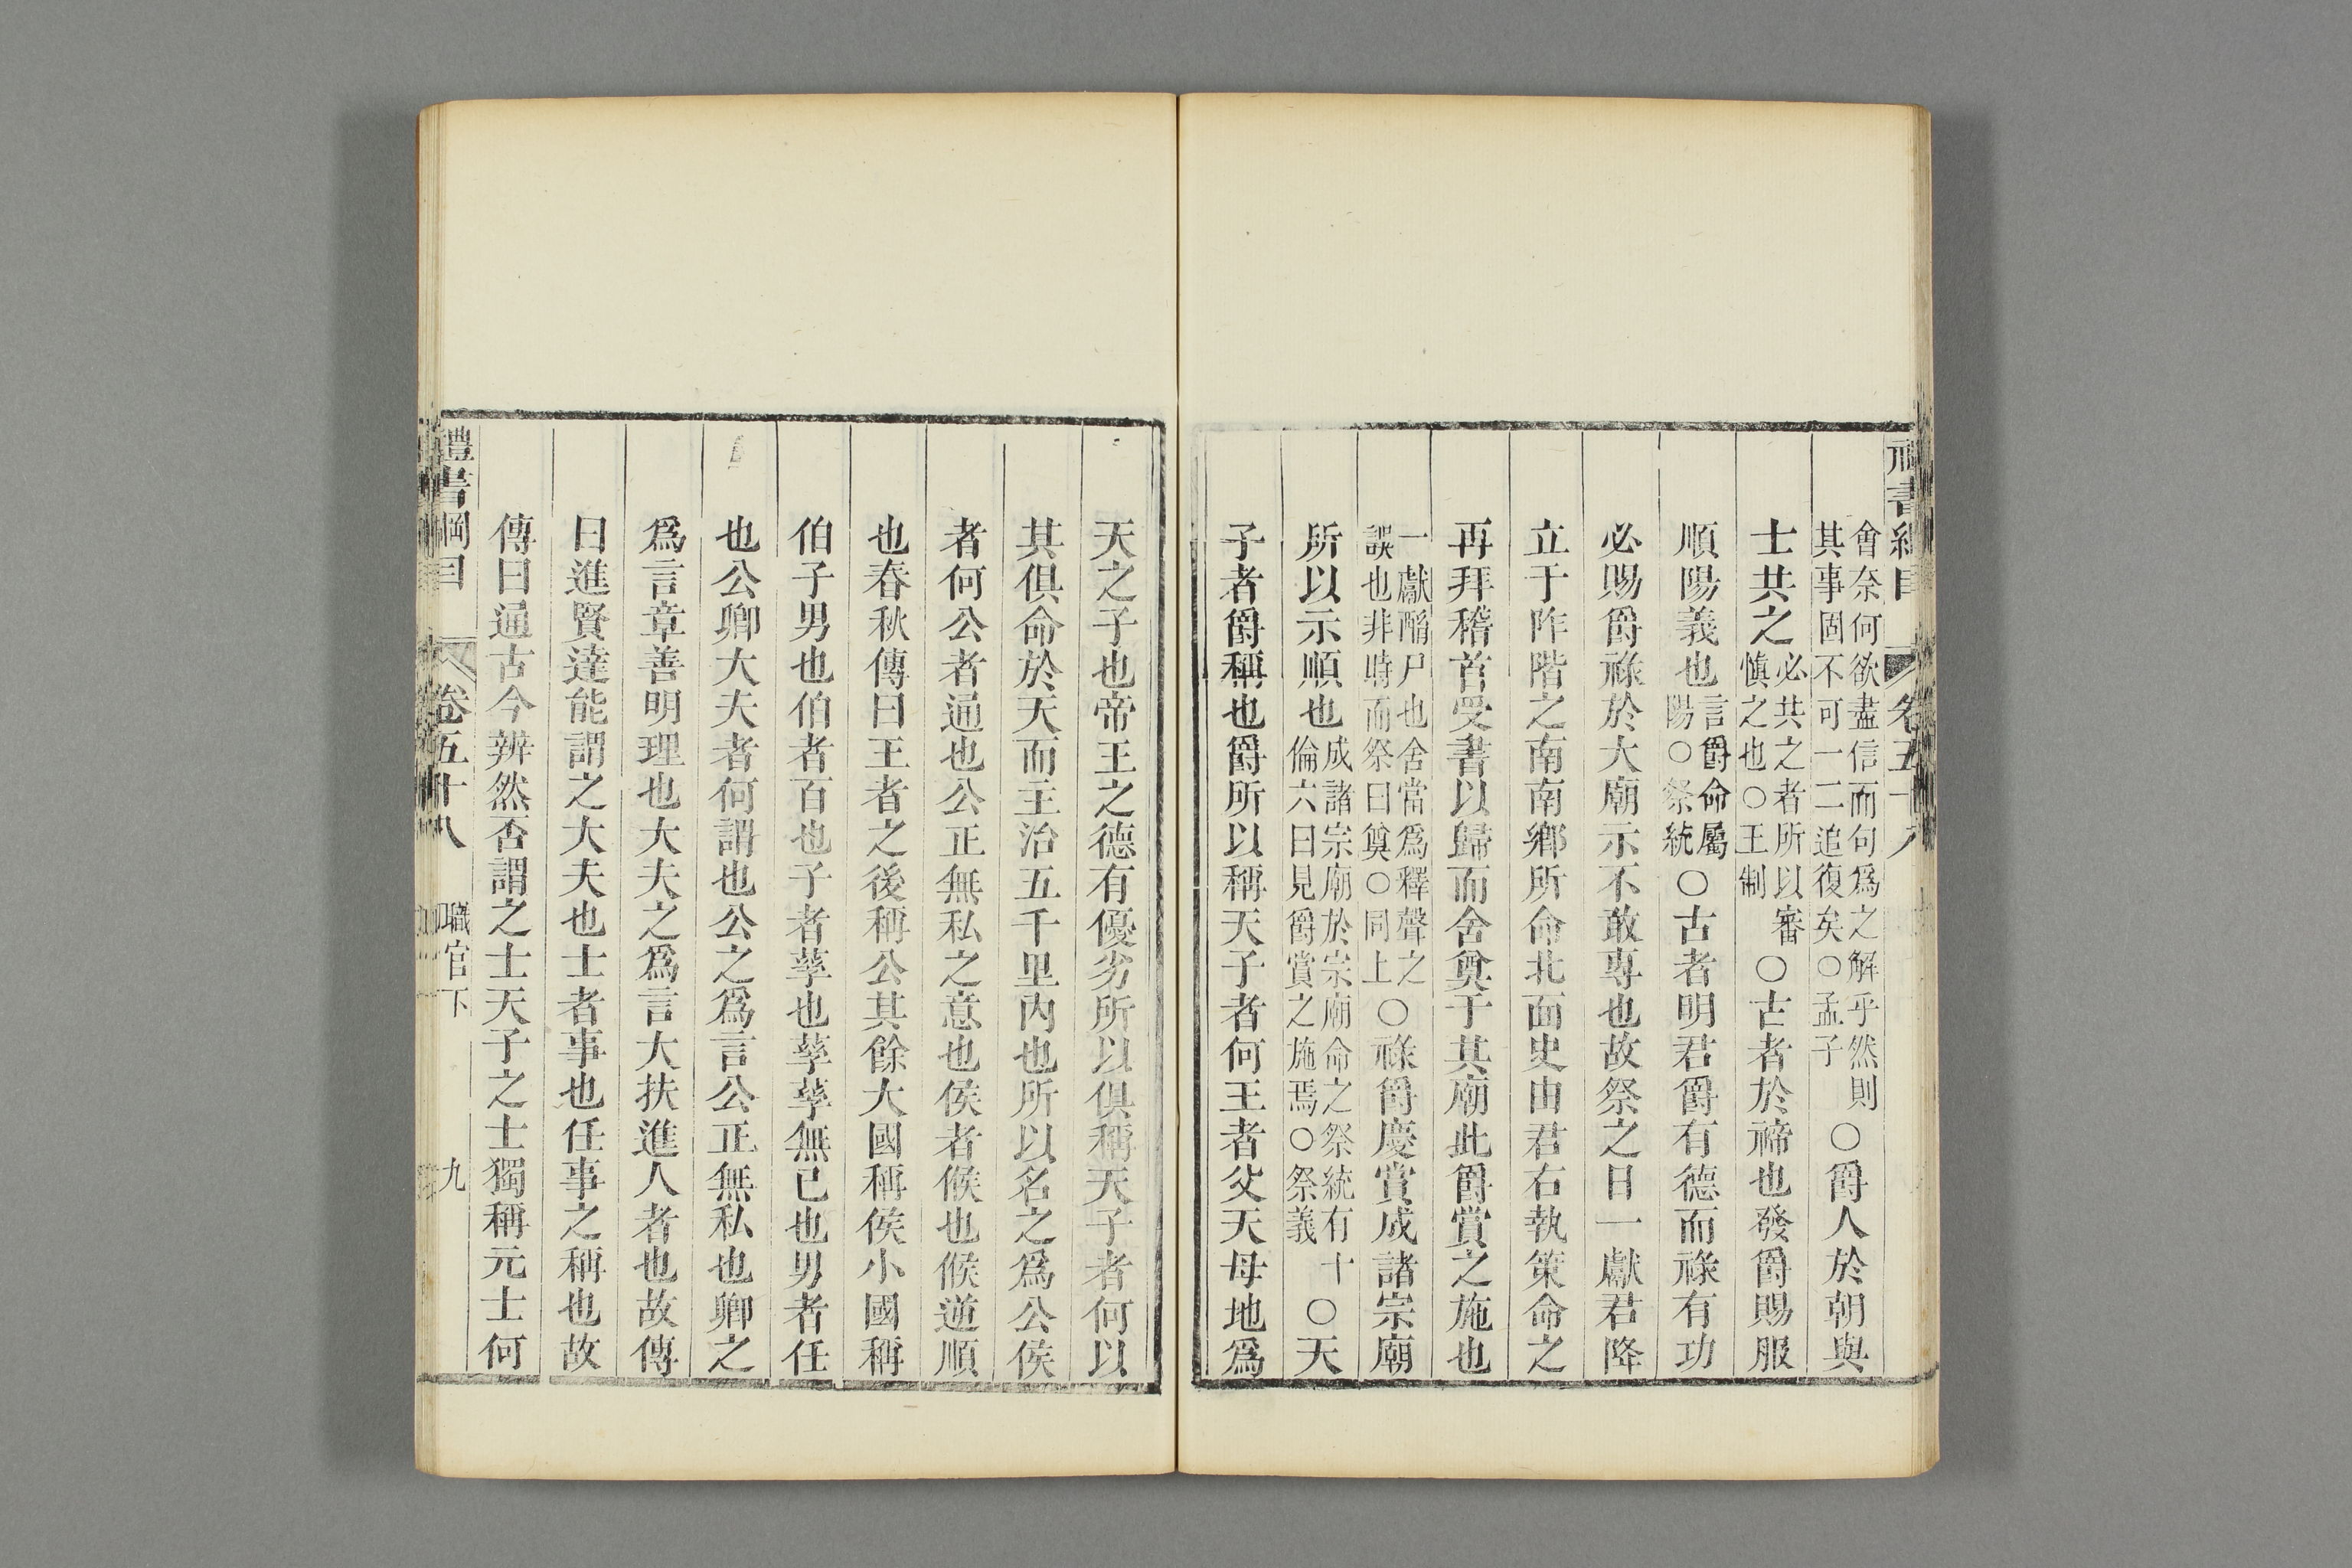 會奈何欲盡信而句爲之解乎然則
其事固不可一二追復矣○孟子
○爵人於朝與
士共之
必共之者所以審
慎之也○王制
○古者於禘也發爵賜服
順陽義也
言爵命屬
陽○祭統
○古者明君爵有德而祿有功
必賜爵祿於大廟示不敢專也故祭之日一獻君降
立于阼階之南南鄉所命北面史由君右執策命之
再拜稽首受書以歸而舍奠于其廟此爵賞之施也
一獻酳尸也舍當爲釋聲之
誤也非時而祭曰奠○同上
○祿爵慶賞成諸宗廟
所以示順也
成諸宗廟於宗廟命之祭統有十
倫六曰見爵賞之施焉○祭義
○天
子者爵稱也爵所以稱天子者何王者父天母地爲
天之子也帝王之德有優劣所以俱稱天子者何以
其俱命於天而主治五千里內也所以名之爲公侯
者何公者通也公正無私之意也侯者候也候逆順
也春秋傳曰王者之後稱公其餘大國稱侯小國稱
伯子男也伯者百也子者孳也孳孳無已也男者任
也公卿大夫者何謂也公之爲言公正無私也卿之
爲言章善明理也大夫之爲言大扶進人者也故傳
曰進賢達能謂之大夫也士者事也任事之稱也故
傳曰通古今辨然否謂之士天子之士獨稱元士何
禮書綱目 卷五十八 職官下 九